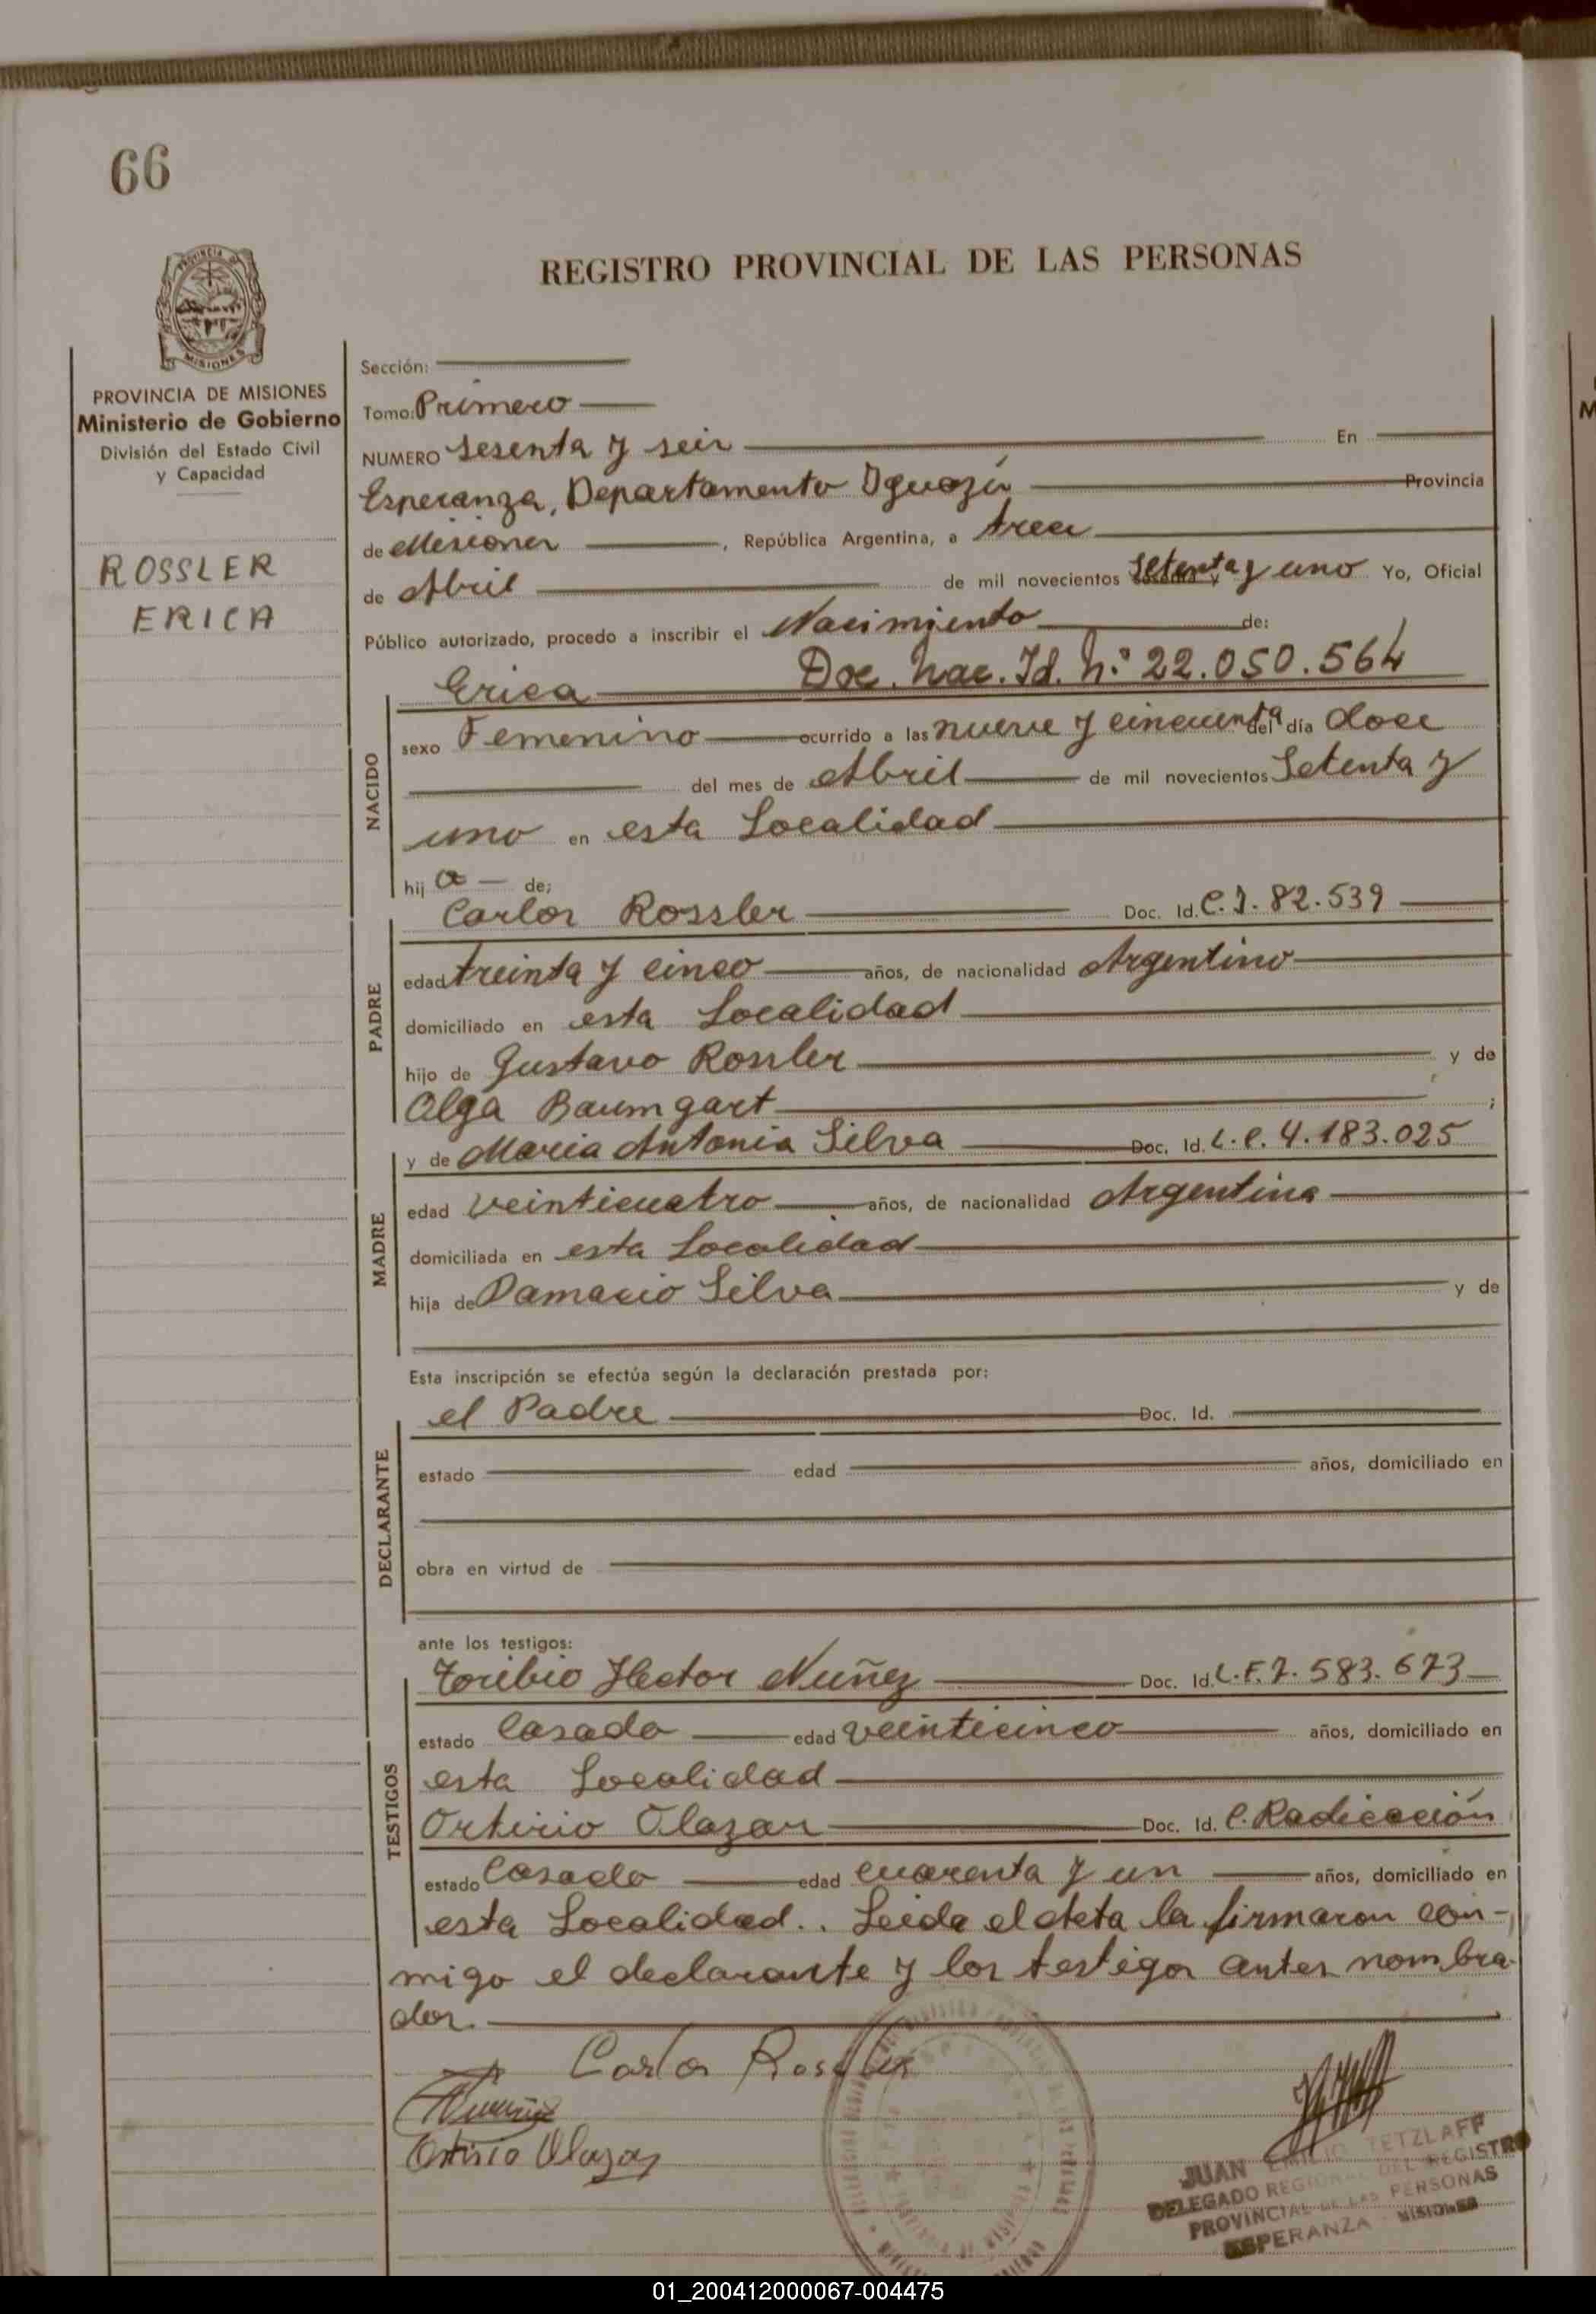 66
REGISTRO PROVINCIAL DE LAS PERSONAS
PROVINCIA DE MISIONES
Ministerio de Gobierno
División del Estado Civil
y Capacidad
ROSSLER
ERICA
Sección:
Tomo: Primero
NUMERO Sesenta y seis En
Esperanza, Departamento Iguazú Provincia
de Misiones, República Argentina, a trece
de Abril de mil novecientos Setenta y uno Yo, Oficial
Público autorizado, procedo a inscribir el Nacimiento de:
Erica Doc. Nac. Id. N° 22.050.564
NACIDO
sexo Femenino ocurrido a las nueve y cincuenta del día doce
del mes de Abril de mil novecientos Setenta y
uno en esta Localidad
hij a de;
PADRE
Carlos Rossler Doc. Id. C.I. 82.539
edad treinta y cinco años, de nacionalidad Argentino
domiciliado en esta Localidad
hijo de Gustavo Rossler y de
Olga Baumgart ;
MADRE
y de Maria Antonia Silva Doc. Id. L.C. 4.183.025
edad veinticuatro años, de nacionalidad Argentina
domiciliada en esta Localidad
hija de Damacio Silva y de
Esta inscripción se efectúa según la declaración prestada por:
DECLARANTE
el Padre Doc. Id.
estado edad años, domiciliado en
obra en virtud de
ante los testigos:
TESTIGOS
Toribio Hector Nuñez Doc. Id. L.E. 7.583.673
estado Casado edad veinticinco años, domiciliado en
esta Localidad
Ortirio Olazar Doc. Id. C. Radicación
estado Casado edad cuarenta y un años, domiciliado en
esta Localidad.. Leida el Acta la firmaron con-
migo el declarante y los testigos antes nombra-
dos.
Carlos Rossler
Ortirio Olazar
JUAN EMILIO TETZLAFF
DELEGADO REGIONAL DEL REGISTRO
PROVINCIAL DE LAS PERSONAS
ESPERANZA - MISIONES
01_200412000067-004475